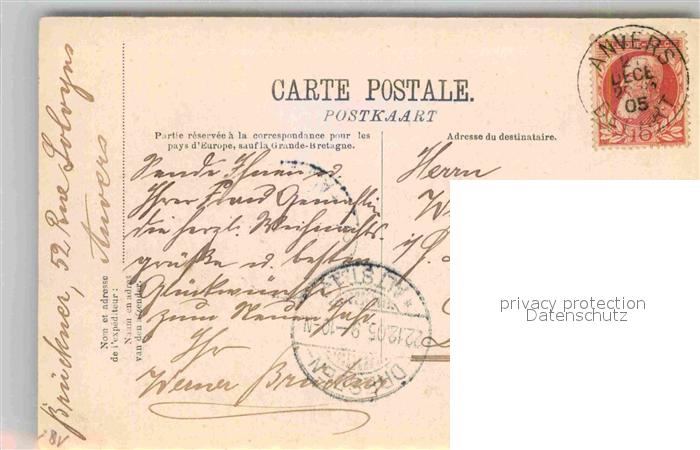 Brückner, 52 Rue Solvyns
Anvers
CARTE POSTALE.
POSTKAART
Partie réservée à la correspondance pour les
pays d'Europe, sauf la Grande-Bretagne.
Adresse du destinataire.
Nom et adresse
de l'expéditeur:
Naam en adres
van den afzender:
Sende Ihnen u.
Ihrer Frau Gemahlin
die herzl. Weihnachts
grüße u. besten
Glückwünsche
zum Neuen Jahr
Ihr
Werner Brückner
Herrn
W
ANVERS
DECE
05
DEPART
ALTST.
22.12.05. 9-10-N
DRESDEN
privacy protection
Datenschutz